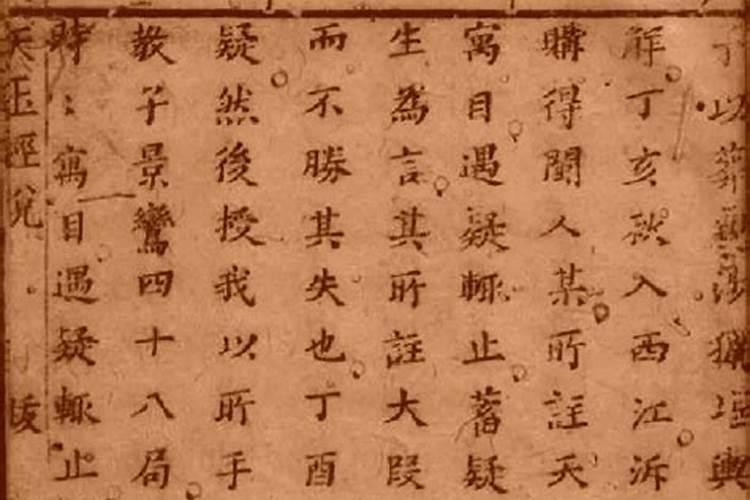 以葬親涉獵堪輿
解丁亥秋入西江泝
購得閩人某所註天
寓目遇疑輒止蓄疑
生為言其所註大段
而不勝其失也丁酉
疑然後授我以所手
教子景鸞四十八局
時〻寓目遇疑輒止
天玉經說 跋